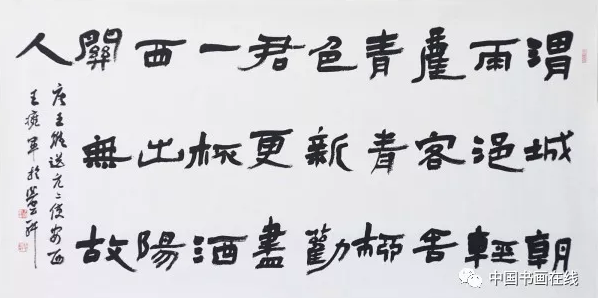 渭城朝
雨浥輕
塵客舍
青青柳
色新勸
君更盡
一杯酒
西出陽
關無故
人
唐王維送元二使安西
王擁軍於軒
中国书画在线